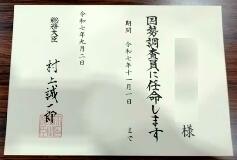 様
国勢調査員に任命します
期間 令和七年十一月一日 まで
令和七年九月二日
総務大臣 村上誠一郎